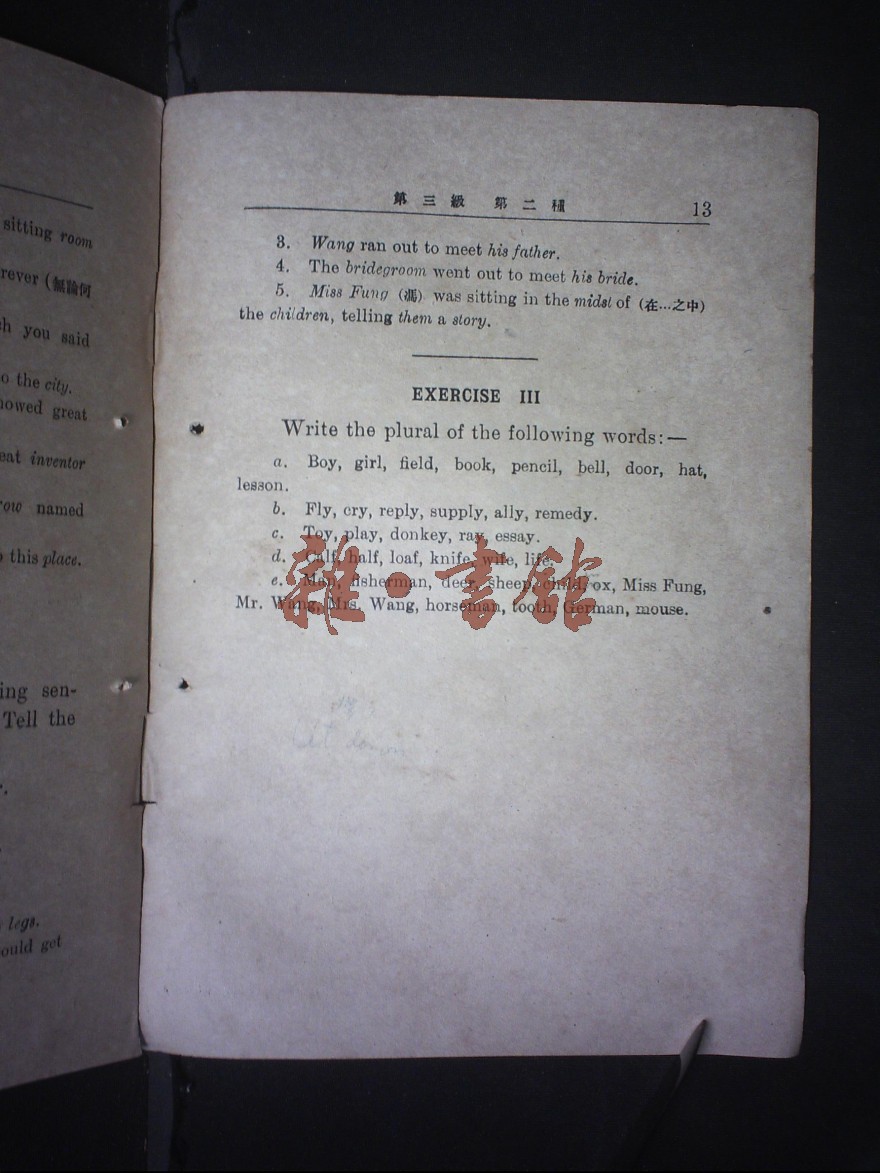 sitting room
rever (無論何
h you said
o the city.
howed great
eat inventor
row named
this place.
ing sen-
Tell the
legs.
ould get
第三級 第二種 13
3. Wang ran out to meet his father.
4. The bridegroom went out to meet his bride.
5. Miss Fung (馮) was sitting in the midst of (在…之中)
the children, telling them a story.
EXERCISE III
Write the plural of the following words:—
a. Boy, girl, field, book, pencil, bell, door, hat,
lesson.
b. Fly, cry, reply, supply, ally, remedy.
c. Toy, play, donkey, ray, essay.
d. Calf, half, loaf, knife, wife, life.
e. Man, fisherman, deer, sheep, child, ox, Miss Fung,
Mr. Wang, Mrs. Wang, horseman, tooth, German, mouse.
雜·書館